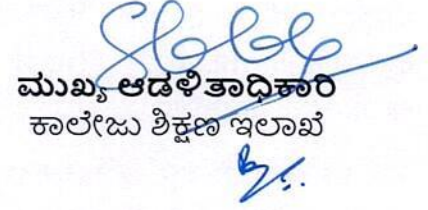 ಮುಖ್ಯ ಆಡಳಿತಾಧಿಕಾರಿ
ಕಾಲೇಜು ಶಿಕ್ಷಣ ಇಲಾಖೆ